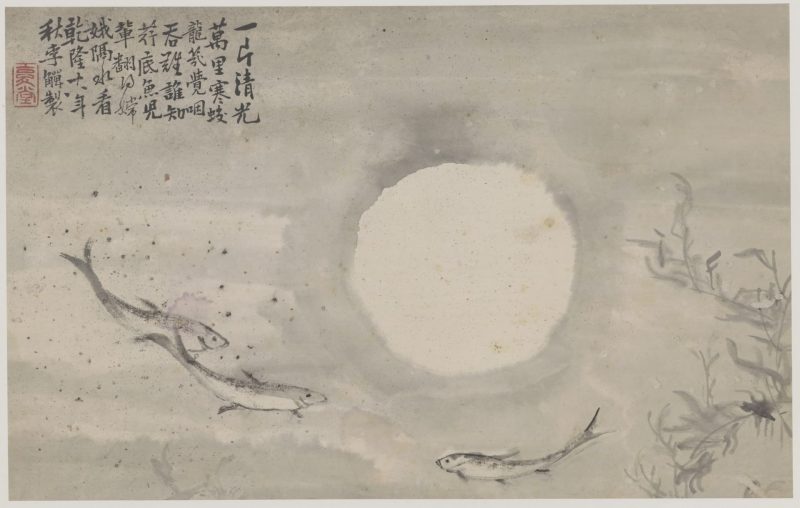 一片清光
萬里寒蛟
龍氣覺咽
吞難誰知
荇底魚兒
輩翻得嫦
娥隔水看
乾隆十年
秋李鱓製